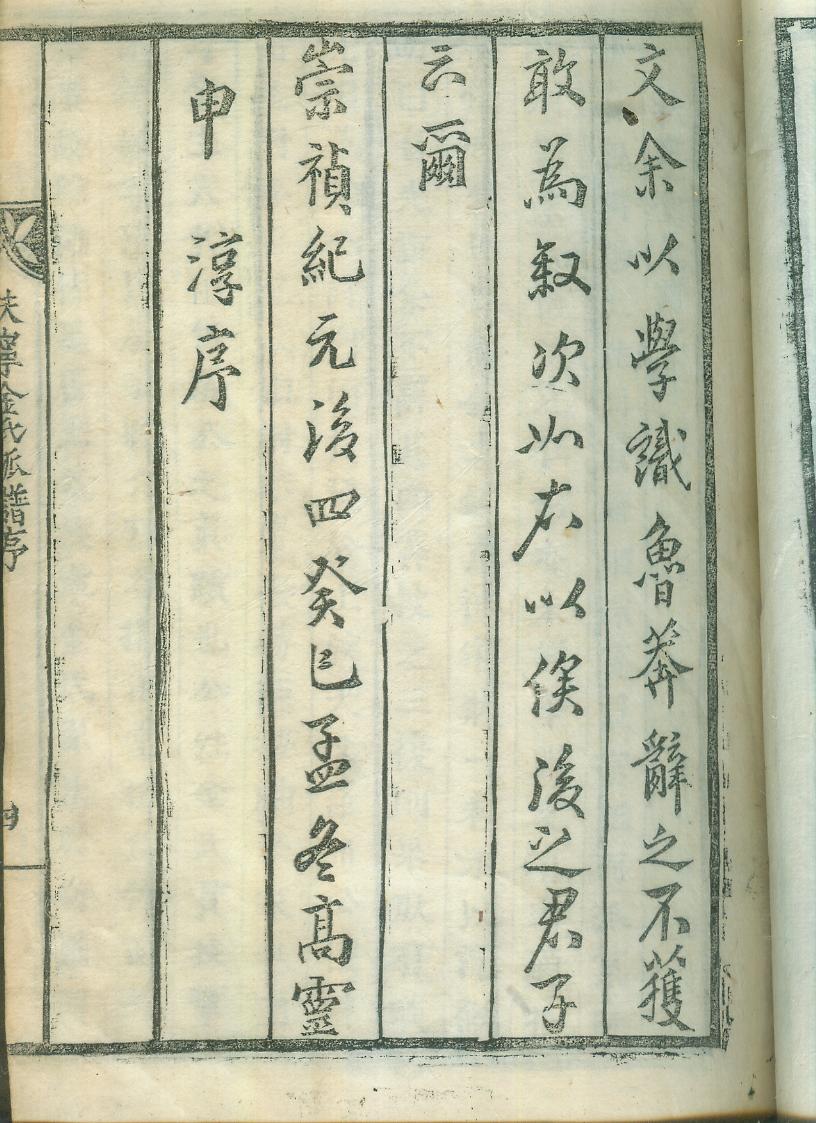 文余以學識魯莽辭之不獲
敢為叙次如右以俟後之君子
云爾
崇禎紀元後四癸巳孟冬高靈
申 淳序
扶寧金氏派譜序
四